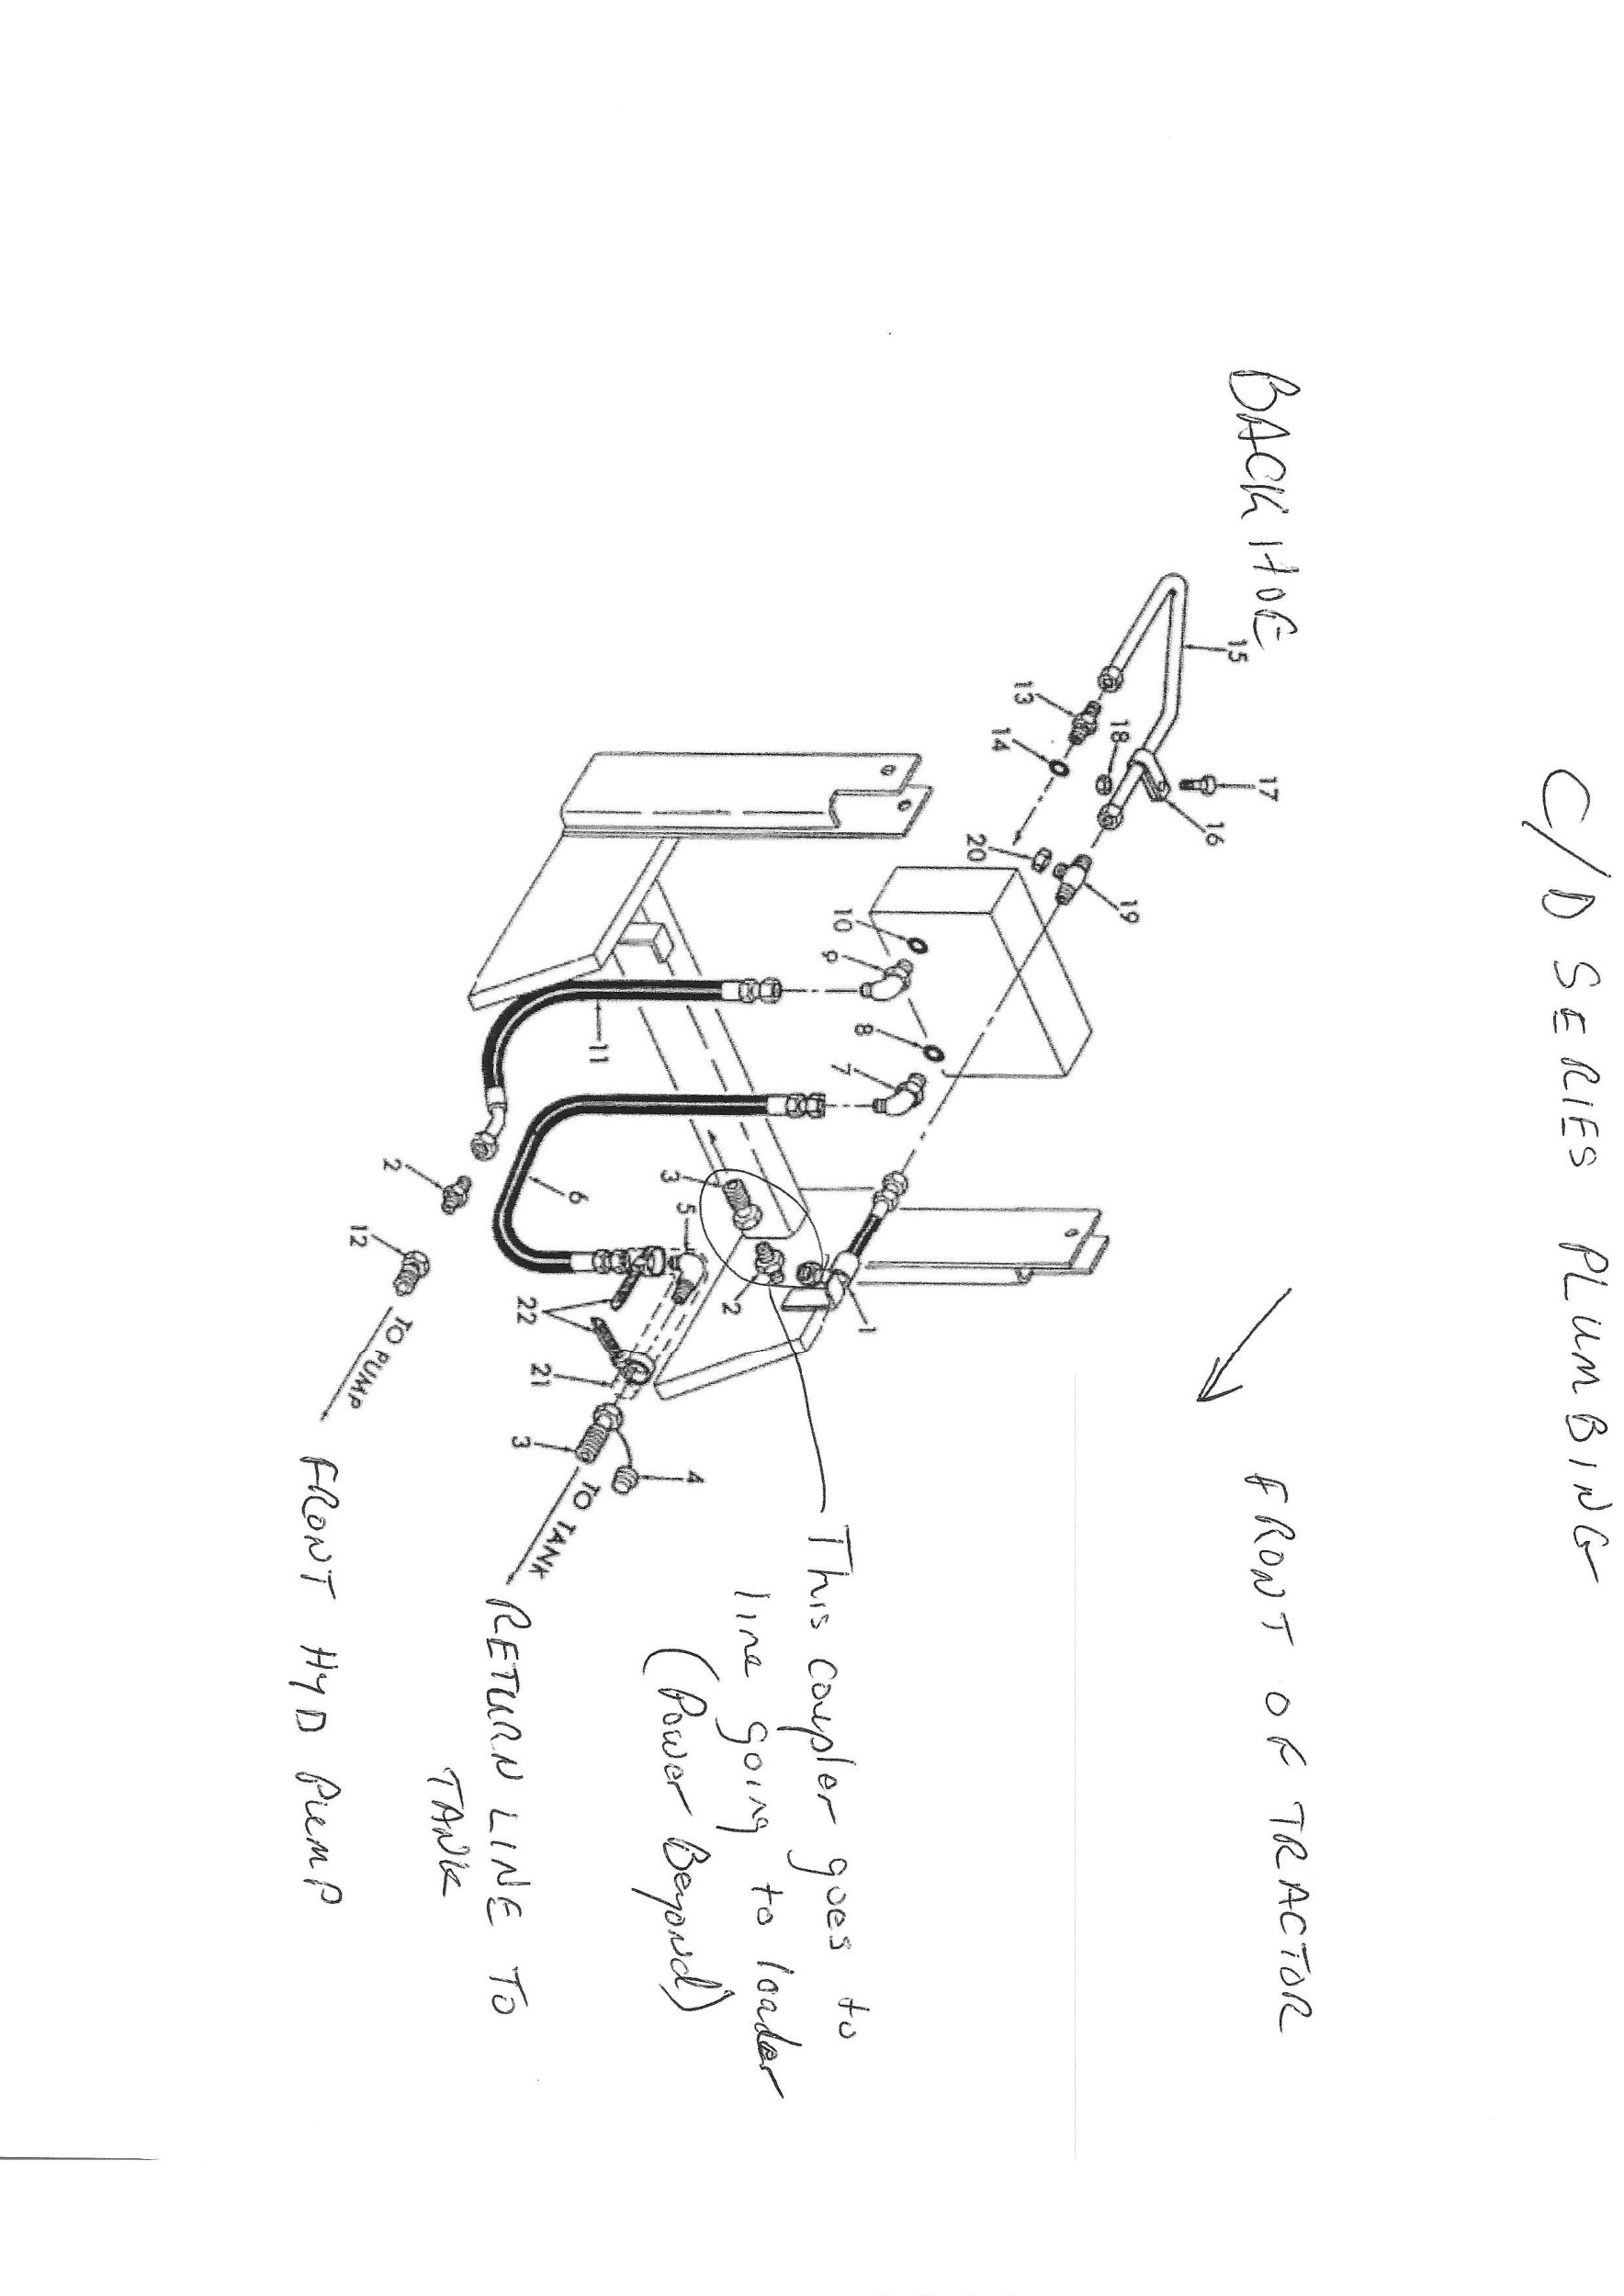 C/D SERIES PLUMBING
BACK HOE
FRONT OF TRACTOR
15
17
16
13
18
14
20
19
10
9
8
7
11
6
3
5
2
1
2
12
22
21
3
4
TO PUMP
TO TANK
This coupler goes to
line going to loader
(Power Beyond)
RETURN LINE TO
TANK
FRONT HYD PUMP